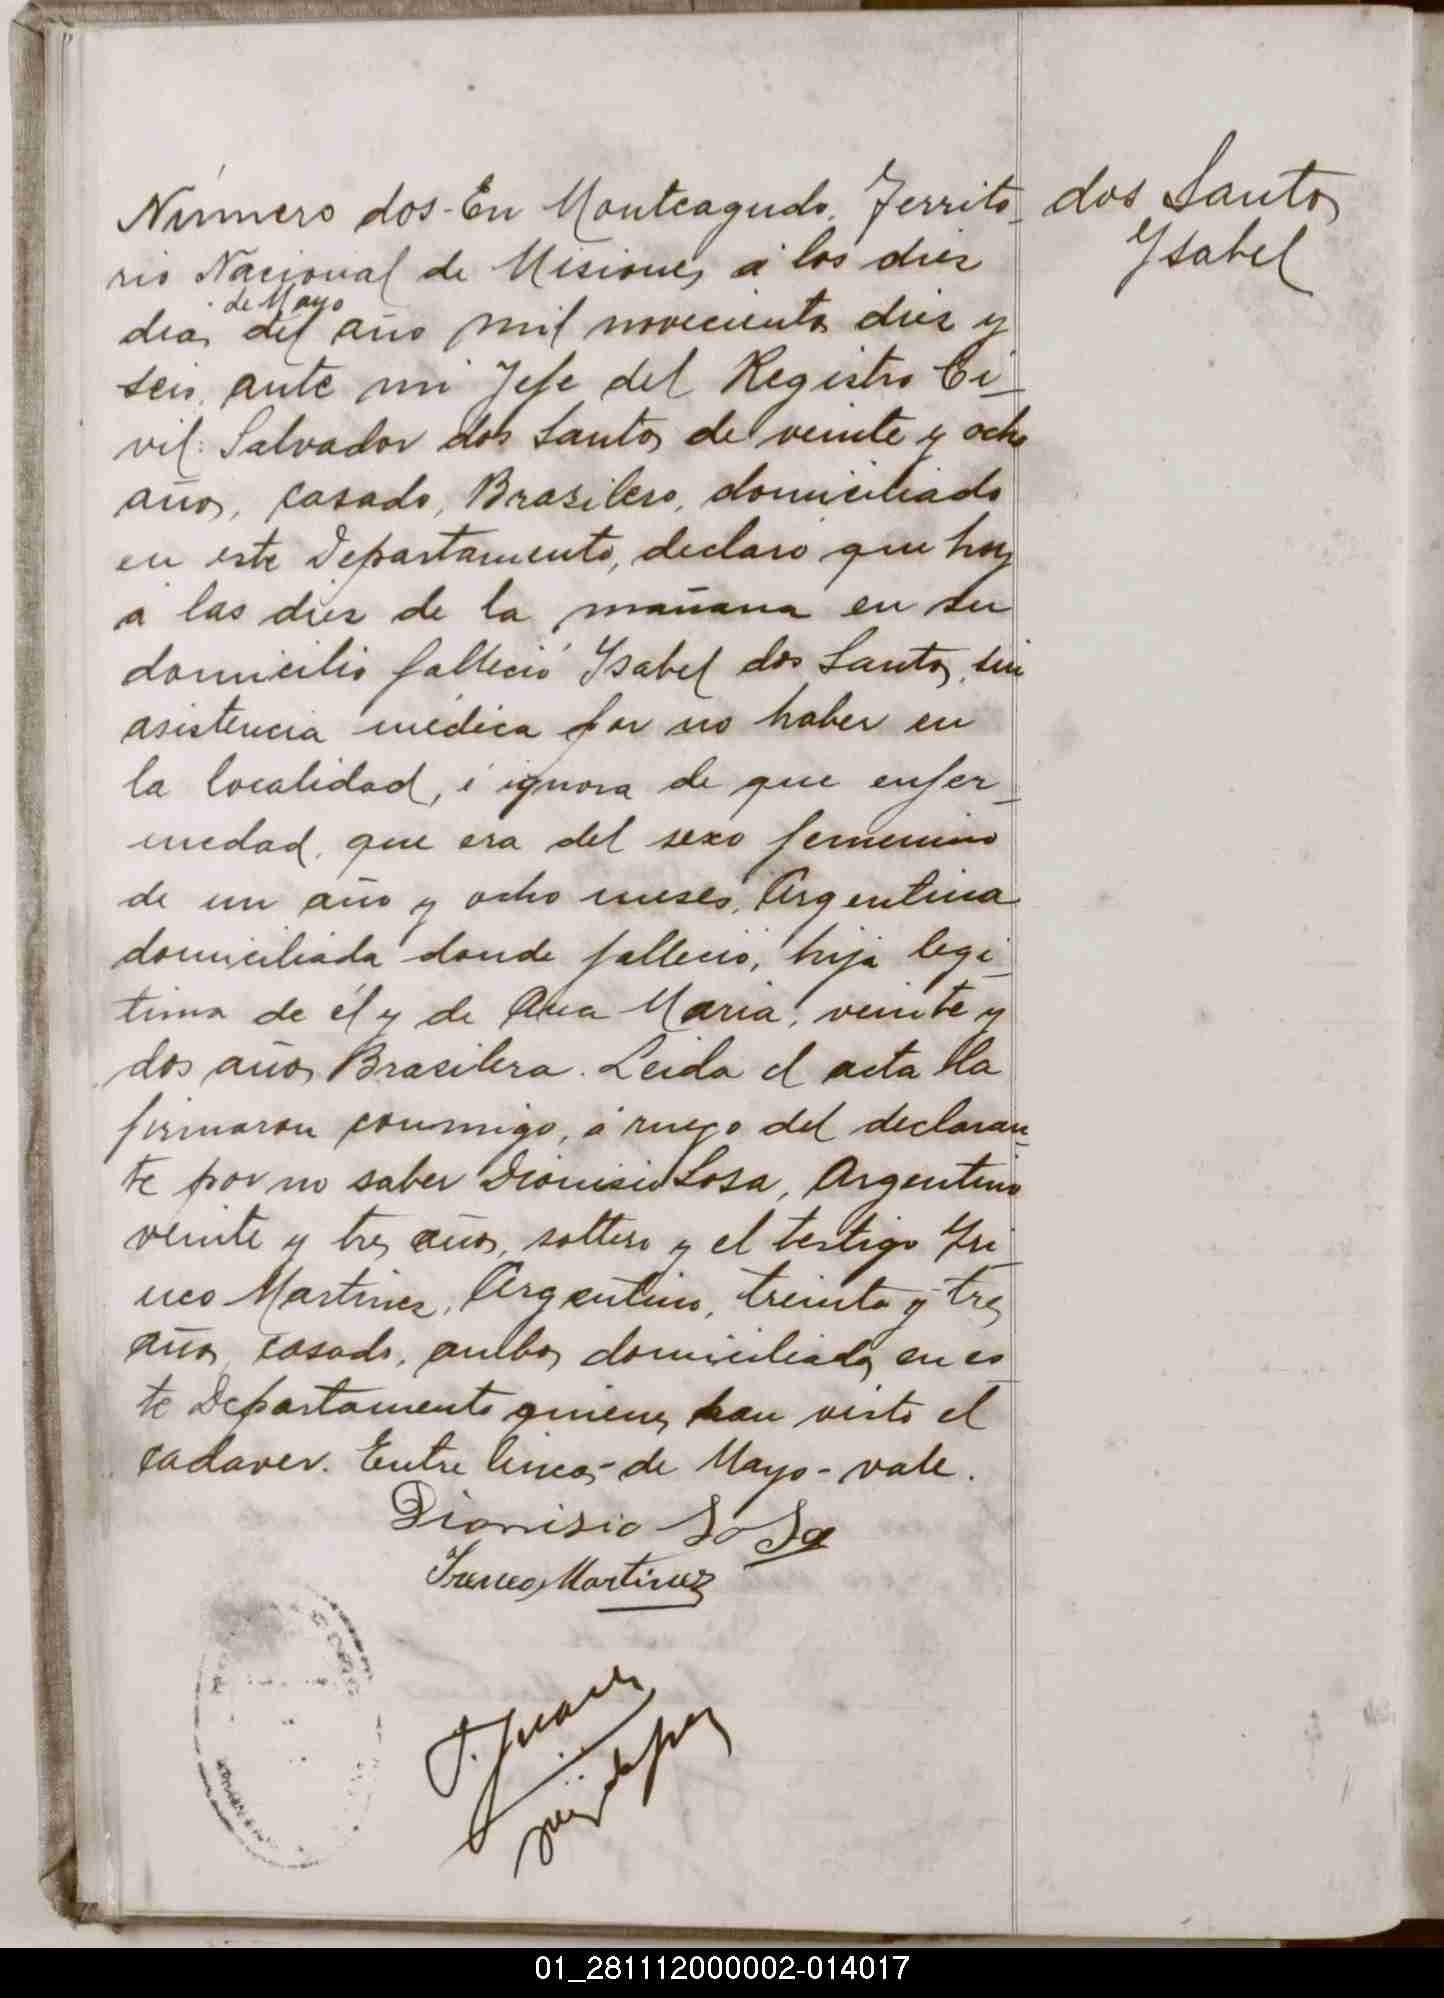 Número dos - En Monteagudo, Territo-
rio Nacional de Misiones á los diez
dias del año mil novecientos diez y
de Mayo
seis, ante mi Jefe del Registro Ci-
vil: Salvador dos Santos de veinte y ocho
años, casado, Brasilero, domiciliado
en este Departamento, declaró que hoy
á las diez de la mañana en su
domicilio falleció Ysabel dos Santos, sin
asistencia médica por no haber en
la localidad, é ignora de que enfer-
medad, que era del sexo femenino
de un año y ocho meses, Argentina
domiciliada donde falleció, hija legi-
tima de él y de Ana Maria, veinte y
dos años Brasilera. Leida el acta la
firmaron conmigo, á ruego del declaran-
te por no saber Dionisio Sosa, Argentino
veinte y tres años, soltero y el testigo Yri
neo Martinez, Argentino, treinta y tres
años, casado, ambos domiciliados en es
te Departamento quienes han visto el
cadaver. Entre lineas - de Mayo - vale.
Dionisio Sosa
Yreneo Martinez
Juez de paz
dos Santos
Ysabel
01_281112000002-014017